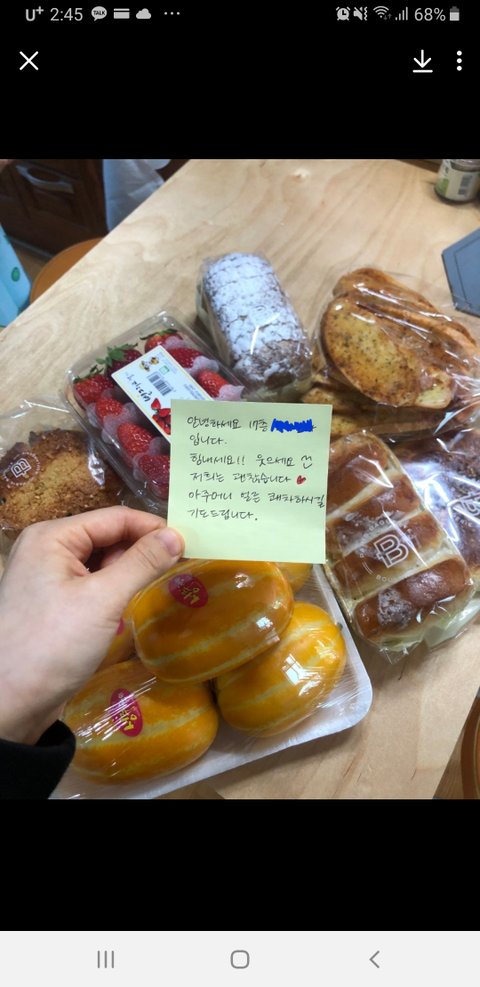 U+ 2:45 TALK 68%
안녕하세요 17층
입니다.
힘내세요!! 웃으세요
저희는 괜찮습니다 ♥
아주머니 얼른 쾌차하시길
기도드립니다.
B
B